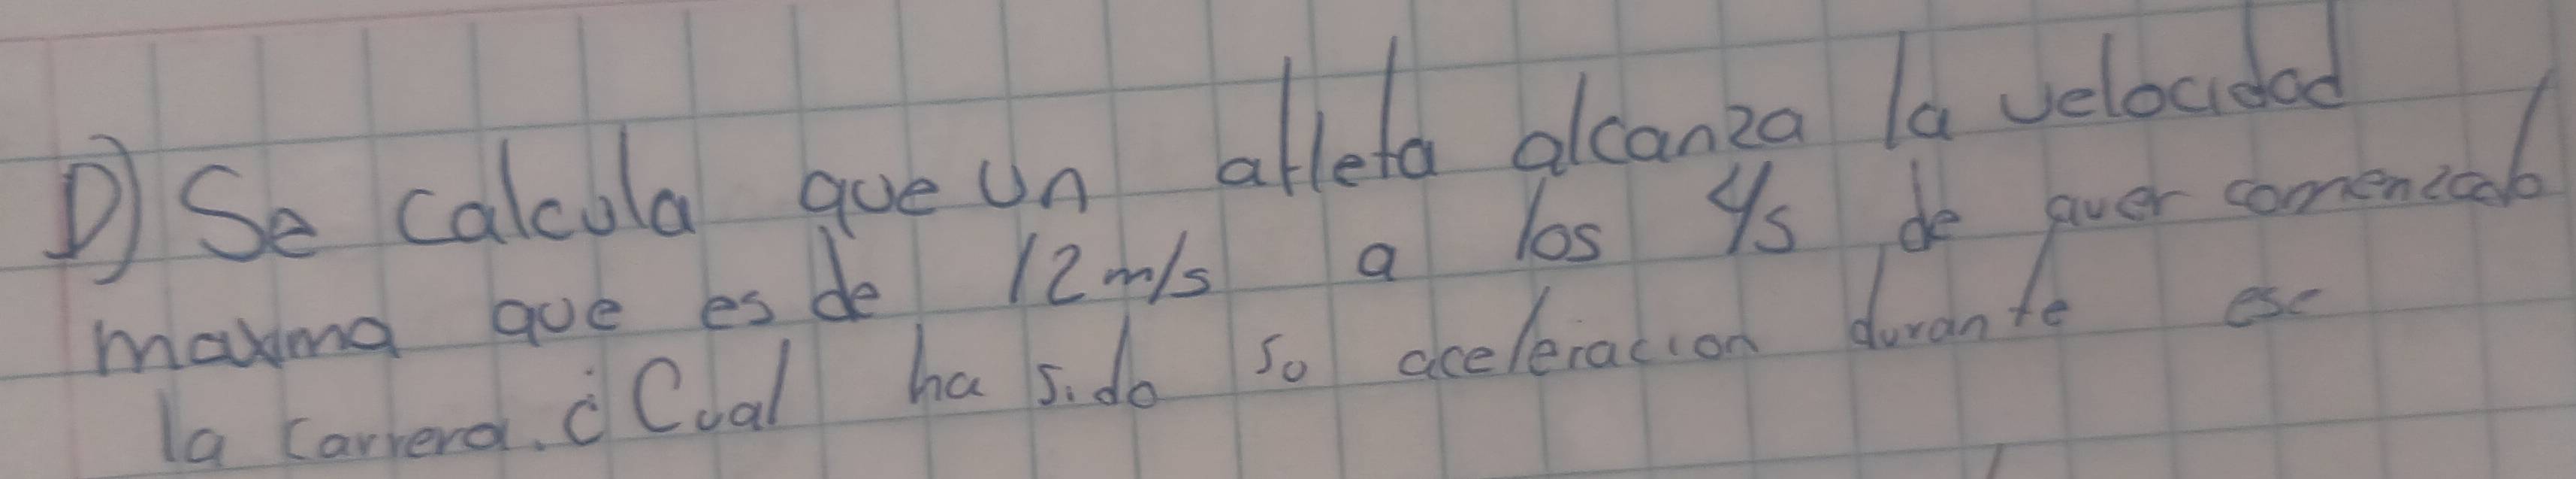 D) Se calcula que un atleta alcanza la velocidad
maxima que es de 12 m/s a los 4s de aver comenzado
la carrera. ¿Cual ha sido so aceleracion durante ese